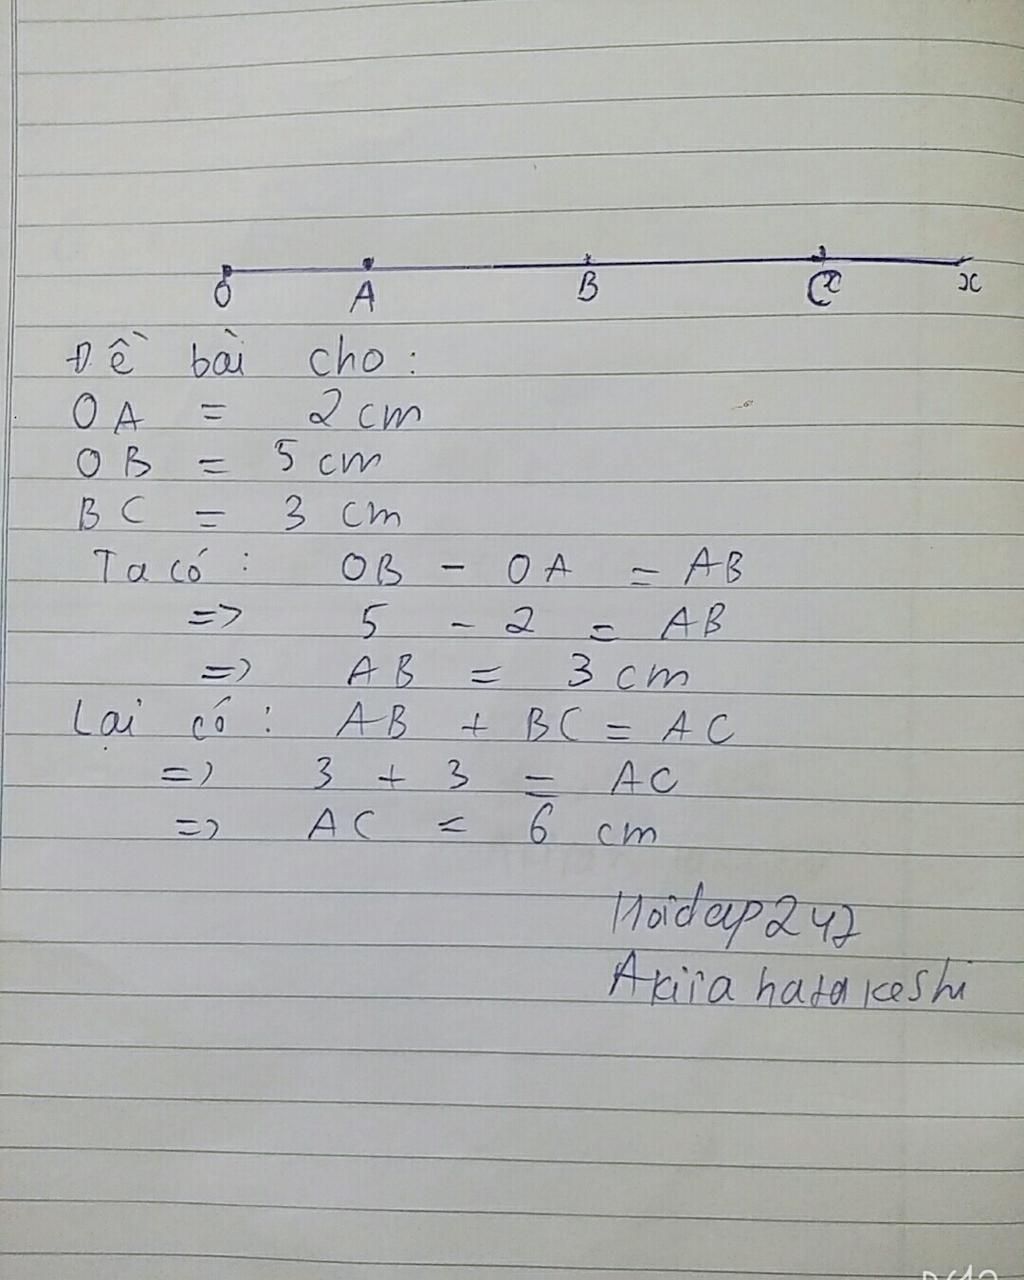 O A B C x
Đề bài cho:
OA = 2 cm
OB = 5 cm
BC = 3 cm
Ta có: OB - OA = AB
=> 5 - 2 = AB
=> AB = 3 cm
Lại có: AB + BC = AC
=> 3 + 3 = AC
=> AC = 6 cm
Hoidap247